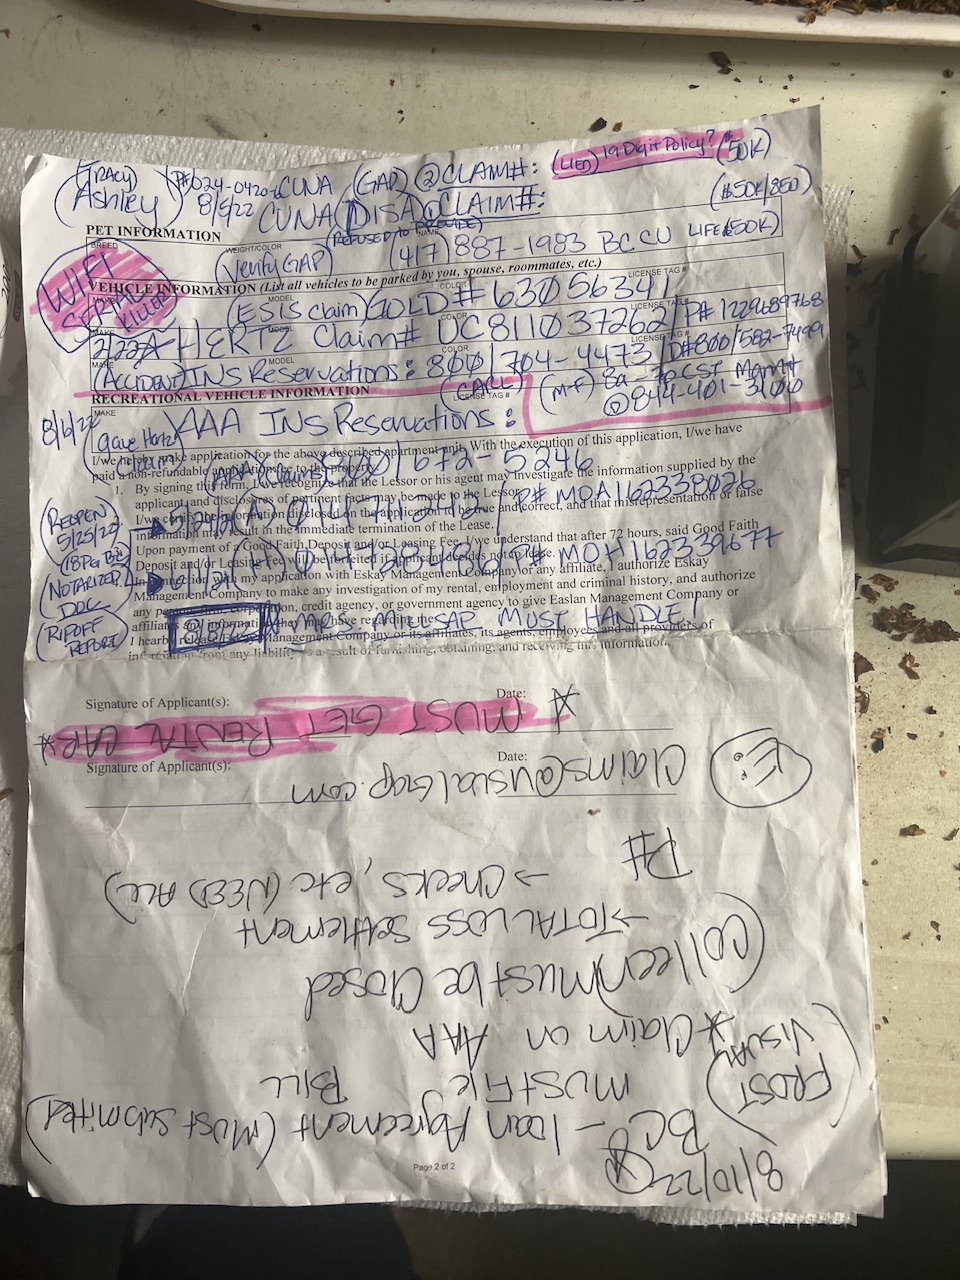 (Tracy) P# 024-0420-CUNA (GAP) ② CLAIM#: (LIED) 19 Digit Policy? (50K)
(Ashley) 8/5/22 CUNA (DISA) ① CLAIM#: ($50K/850)
(REFUSED to PROVIDE)
PET INFORMATION
BREED WEIGHT/COLOR NAME
(Verify GAP) (417) 887-1983 BCCU LIFE $50K)
WIFI
SERIAL
KILLER
VEHICLE INFORMATION (List all vehicles to be parked by you, spouse, roommates, etc.)
MODEL COLOR LICENSE TAG #
(ESIS claim) GOLD# 63056341
MODEL COLOR LICENSE TAG #
2/22 HERTZ Claim# UC811037262 / P# 1229689768
MAKE MODEL COLOR LICENSE TAG #
(ACCIDENT) INS Reservations: 800/704-4473 / D# 800/582-7499
RECREATIONAL VEHICLE INFORMATION
(CALL) (M-F) 8a-7p CST Mgmt#
MAKE LICENSE TAG #
① 844-401-3100
8/6/22 (gave Hertz claim) AAA INS Reservations:
/672-5246
I/we hereby make application for the above described apartment unit. With the execution of this application, I/we have
paid a non-refundable application fee to the property.
1. By signing this form, I/we recognize that the Lessor or his agent may investigate the information supplied by the
applicant, and disclosures of pertinent facts may be made to the Lessor.
I/we certify the information disclosed on the application to be true and correct, and that misrepresentation or false
information may result in the immediate termination of the Lease.
P# MOA162338026
Upon payment of a Good Faith Deposit and/or Leasing Fee, I/we understand that after 72 hours, said Good Faith
Deposit and/or Leasing Fee will be forfeited if applicant decides not to lease.
P# MOH162339677
In connection with my application with Eskay Management Company or any affiliate, I authorize Eskay
Management Company to make any investigation of my rental, employment and criminal history, and authorize
any person, corporation, credit agency, or government agency to give Easlan Management Company or
affiliates any information they may have regarding me.
MUST HANDLE!
I hearby release Management Company or its affiliates, its agents, employees and all providers of
information from any liability as a result of furnishing, obtaining, and receiving this information.
(REOPEN
5/25/22
(18 Pg Bill
NOTARIZED
DOC
(RIPOFF
REPORT)
Signature of Applicant(s): Date:
Signature of Applicant(s): Date:
Page 2 of 2
8/10/22
BCU - loan Agreement (Must submitted)
(FROST) MUST FILE BILL
(VISUAL) * Claim on AAA
(Colleen) Must be Closed
→ TOTAL LOSS Settlement
→ Checks, etc (NEED ALL)
P#
E: Claims@visualgap.com
* MUST GET RENTAL CAR *